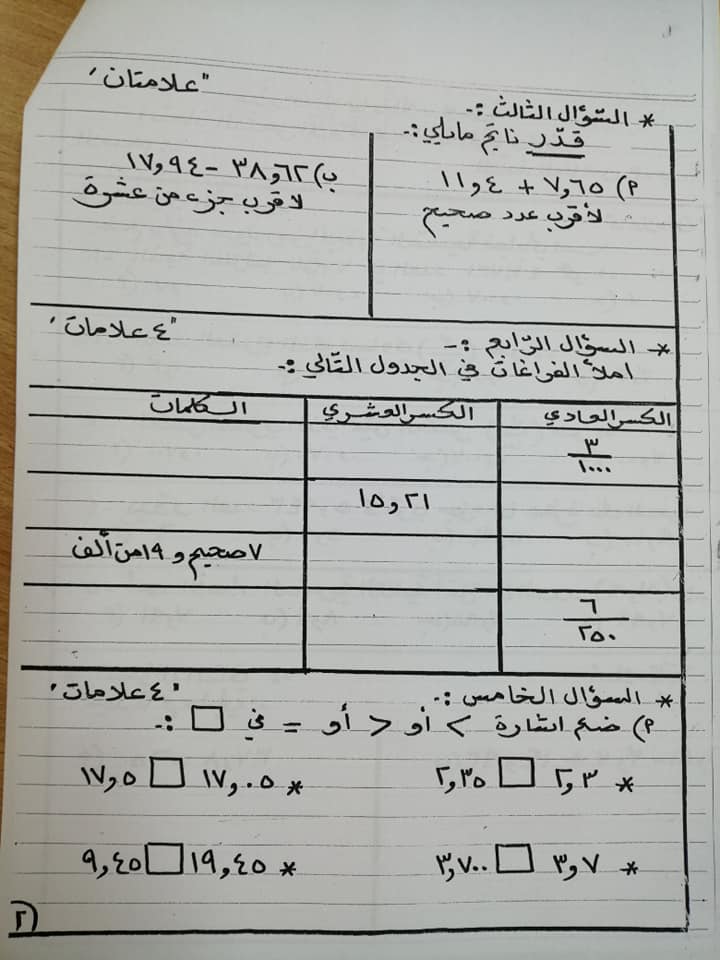 "علامتان"
* السؤال الثالث :-
قدّر ناتج مايلي :-
٢) ٧,٦٥ + ١١,٤
لأقرب عدد صحيح
ب) ٣٨,٦٢ - ١٧,٩٤
لاقرب جزء من عشرة
* السؤال الرّابع :- "٤ علامات"
املأ الفراغات في الجدول التّالي :-
الكسر العادي الكسر العشري الكلمات
٣/١٠٠٠
١٥,٢١
٧ صحيح و ١٩ من ألف
٦/٢٥٠
* السؤال الخامس :- "٤ علامات"
٢) ضع اشارة < أو > أو = في □ :-
* ٢,٣ □ ٢,٣٥ * ١٧,٠٥ □ ١٧,٥
* ٣,٧ □ ٣,٧٠٠ * ١٩,٤٥ □ ٩,٤٥
٢